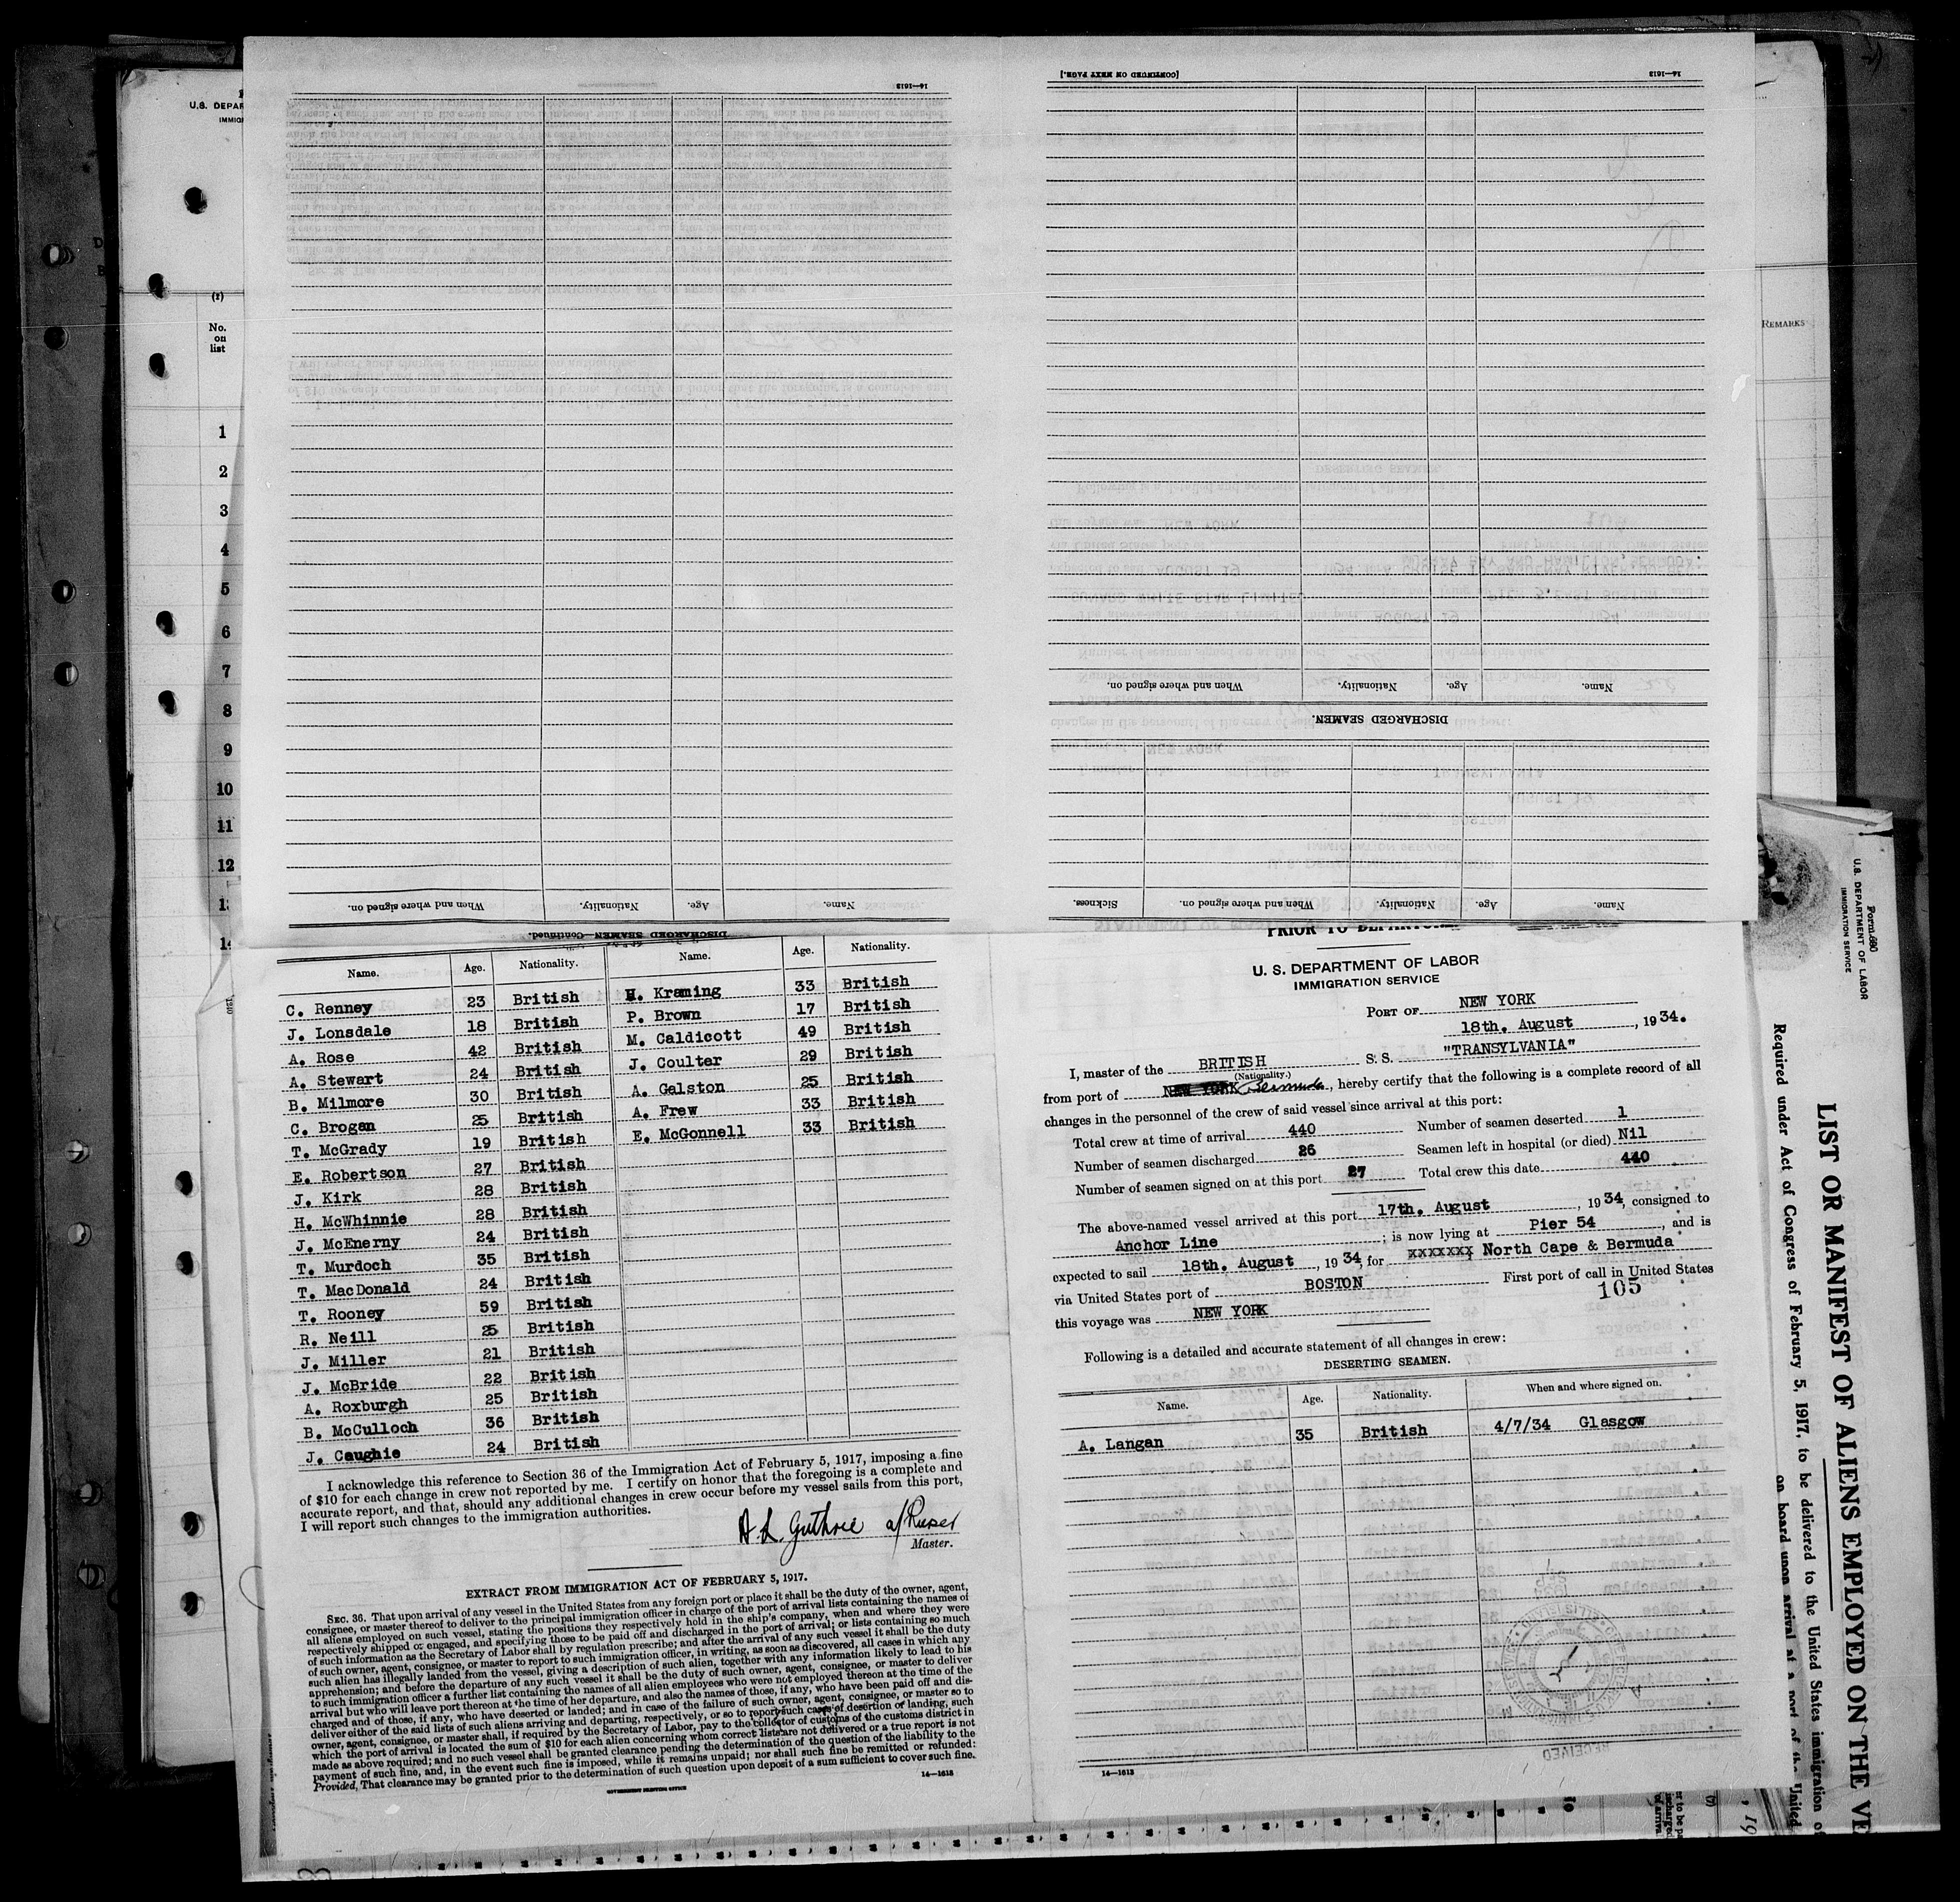 U.S. DEPAR
IMMIG
(1)
No.
on
list
1
2
3
4
5
6
7
8
9
10
11
12
REMARKS
14—1613
[CONTINUED ON NEXT PAGE.]
14—1613
Name.
Age.
Nationality.
When and where signed on.
DISCHARGED SEAMEN.
Name.
Age.
Nationality.
When and where signed on.
Sickness.
Name.
Age.
Nationality.
When and where signed on.
DISCHARGED SEAMEN—Continued.
Name. Age. Nationality. Name. Age. Nationality.
C. Renney 23 British H. Kraming 33 British
J. Lonsdale 18 British P. Brown 17 British
A. Rose 42 British M. Caldicott 49 British
A. Stewart 24 British J. Coulter 29 British
B. Milmore 30 British A. Galston 25 British
C. Brogan 25 British A. Frew 33 British
T. McGrady 19 British E. McGonnell 33 British
E. Robertson 27 British
J. Kirk 28 British
H. McWhinnie 28 British
J. McEnerny 24 British
T. Murdoch 35 British
T. MacDonald 24 British
T. Rooney 59 British
R. Neill 25 British
J. Miller 21 British
J. McBride 22 British
A. Roxburgh 25 British
B. McCulloch 36 British
J. Caughie 24 British
I acknowledge this reference to Section 36 of the Immigration Act of February 5, 1917, imposing a fine
of $10 for each change in crew not reported by me. I certify on honor that the foregoing is a complete and
accurate report, and that, should any additional changes in crew occur before my vessel sails from this port,
I will report such changes to the immigration authorities.
A. L. Guthrie
Master.
EXTRACT FROM IMMIGRATION ACT OF FEBRUARY 5, 1917.
SEC. 36. That upon arrival of any vessel in the United States from any foreign port or place it shall be the duty of the owner, agent,
consignee, or master thereof to deliver to the principal immigration officer in charge of the port of arrival lists containing the names of
all aliens employed on such vessel, stating the positions they respectively hold in the ship's company, when and where they were
respectively shipped or engaged, and specifying those to be paid off and discharged in the port of arrival; or lists containing so much
of such information as the Secretary of Labor shall by regulation prescribe; and after the arrival of any such vessel it shall be the duty
of such owner, agent, consignee, or master to report to such immigration officer, in writing, as soon as discovered, all cases in which any
such alien has illegally landed from the vessel, giving a description of such alien, together with any information likely to lead to his
apprehension; and before the departure of any such vessel it shall be the duty of such owner, agent, consignee, or master to deliver
to such immigration officer a further list containing the names of all alien employees who were not employed thereon at the time of the
arrival but who will leave port thereon at the time of her departure, and also the names of those, if any, who have been paid off and dis-
charged and of those, if any, who have deserted or landed; and in case of the failure of such owner, agent, consignee, or master so to
deliver either of the said lists of such aliens arriving and departing, respectively, or so to report such cases of desertion or landing, such
owner, agent, consignee, or master shall, if required by the Secretary of Labor, pay to the collector of customs of the customs district in
which the port of arrival is located the sum of $10 for each alien concerning whom correct lists are not delivered or a true report is not
made as above required; and no such vessel shall be granted clearance pending the determination of the question of the liability to the
payment of such fine, and, in the event such fine is imposed, while it remains unpaid; nor shall such fine be remitted or refunded:
Provided, That clearance may be granted prior to the determination of such question upon deposit of a sum sufficient to cover such fine.
GOVERNMENT PRINTING OFFICE
14—1613
PRIOR TO DEPARTURE
U. S. DEPARTMENT OF LABOR
IMMIGRATION SERVICE
PORT OF NEW YORK
18th. August, 1934.
I, master of the BRITISH S. S. "TRANSYLVANIA"
(Nationality.)
from port of NEW YORK Bermuda, hereby certify that the following is a complete record of all
changes in the personnel of the crew of said vessel since arrival at this port:
Total crew at time of arrival 440 Number of seamen deserted 1
Number of seamen discharged 26 Seamen left in hospital (or died) Nil
Number of seamen signed on at this port 27 Total crew this date 440
The above-named vessel arrived at this port 17th. August, 1934, consigned to
Anchor Line; is now lying at Pier 54, and is
expected to sail 18th. August, 1934, for xxxxxxx North Cape & Bermuda
via United States port of BOSTON First port of call in United States
this voyage was NEW YORK
105
Following is a detailed and accurate statement of all changes in crew:
DESERTING SEAMEN.
Name. Age. Nationality. When and where signed on.
A. Langan 35 British 4/7/34 Glasgow
14—1613
RECEIVED
Form 680
U. S. DEPARTMENT OF LABOR
IMMIGRATION SERVICE
LIST OR MANIFEST OF ALIENS EMPLOYED ON THE VE
Required under Act of Congress of February 5, 1917, to be delivered to the United States immigration of
on board upon arrival at a port of the United